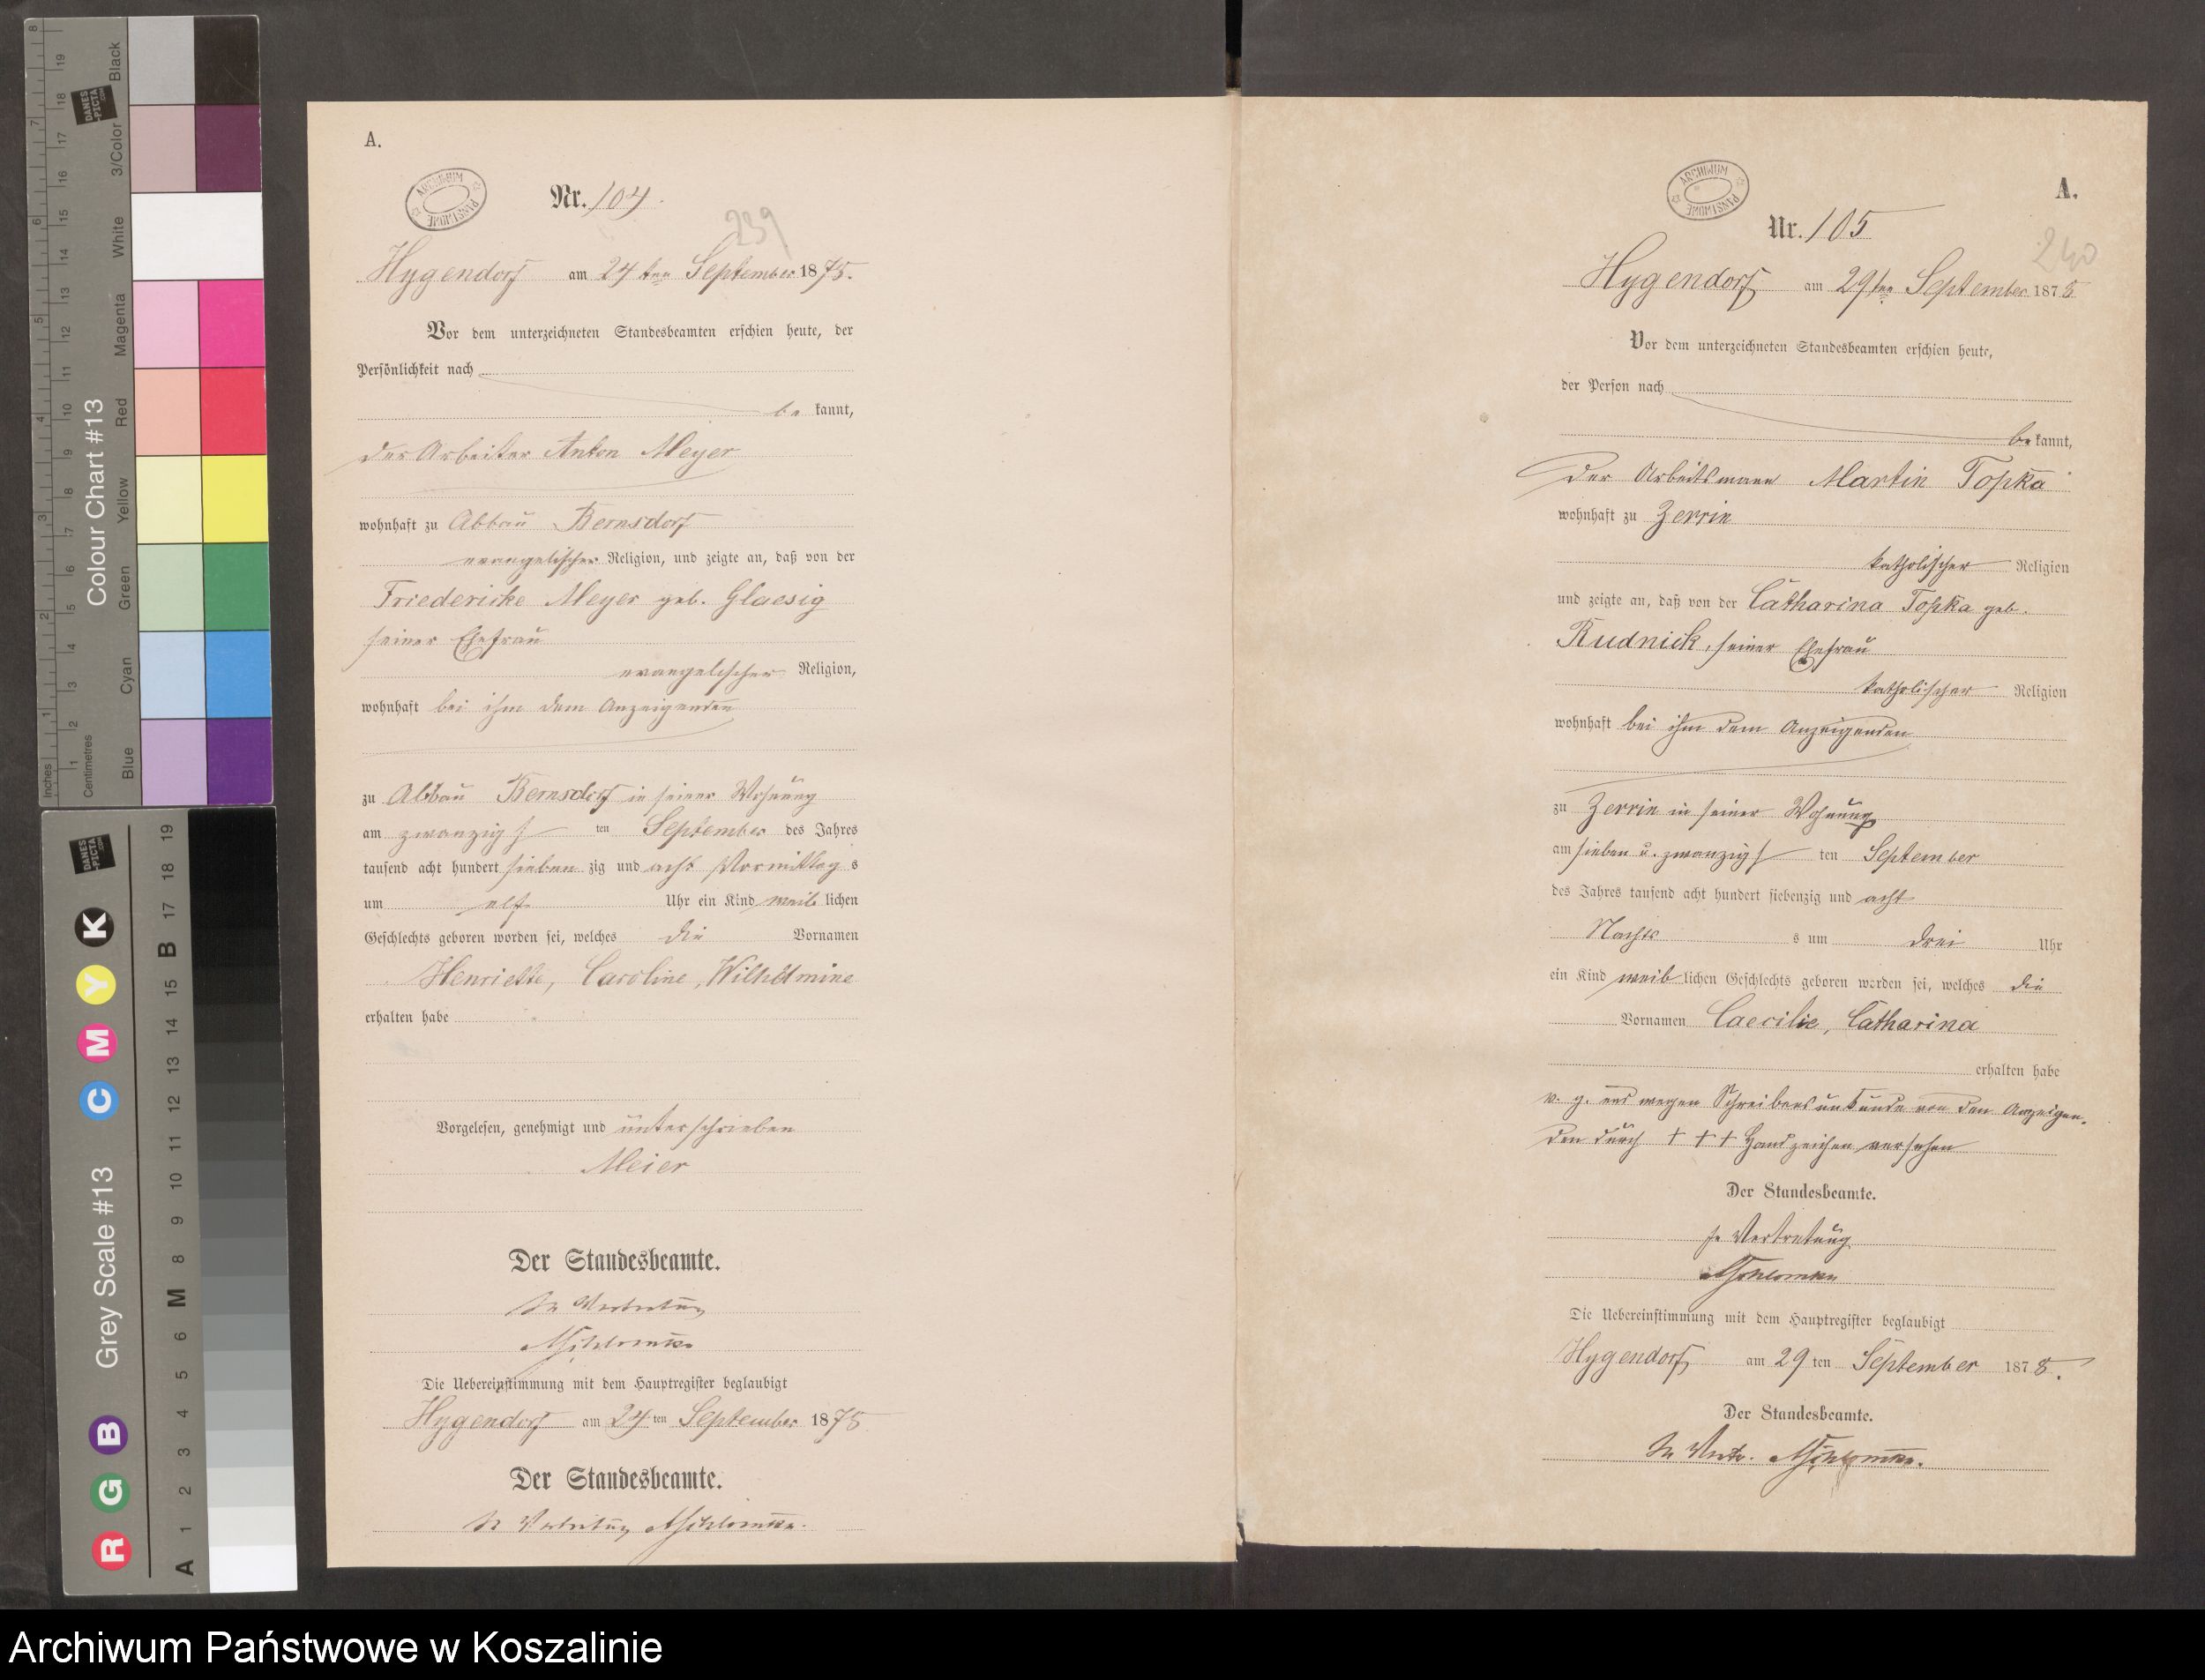 A.
Nr. 104.
239
Hygendorf am 24ten September 1878.
Vor dem unterzeichneten Standesbeamten erschien heute, der
Persönlichkeit nach
be kannt,
der Arbeiter Anton Meyer
wohnhaft zu Abbau Bernsdorf
evangelischer Religion, und zeigte an, daß von der
Friedericke Meyer geb. Glaesig
seiner Ehefrau
evangelischer Religion,
wohnhaft bei ihm dem Anzeigenden
zu Abbau Bernsdorf in seiner Wohnung
am zwanzigs ten September des Jahres
tausend acht hundert sieben zig und acht Vormittag s
um elf Uhr ein Kind weib lichen
Geschlechts geboren worden sei, welches die Vornamen
Henriette, Caroline, Wilhelmine
erhalten habe
Vorgelesen, genehmigt und unterschrieben
Meier
Der Standesbeamte.
In Vertretung
Die Uebereinstimmung mit dem Hauptregister beglaubigt
Hygendorf am 24 ten September 1878
Der Standesbeamte.
In Vertretung
A.
Nr. 105
240
Hygendorf am 29ten September 1878
Vor dem unterzeichneten Standesbeamten erschien heute,
der Person nach
be kannt,
der Arbeitsmann Martin Topka
wohnhaft zu Zerrin
katholischer Religion
und zeigte an, daß von der Catharina Topka geb.
Rudnick, seiner Ehefrau
katholischer Religion
wohnhaft bei ihm dem Anzeigenden
zu Zerrin in seiner Wohnung
am sieben u. zwanzigs ten September
des Jahres tausend acht hundert siebenzig und acht
Nachts s um drei Uhr
ein Kind weib lichen Geschlechts geboren worden sei, welches die
Vornamen Caecilie, Catharina
erhalten habe
v. g. und wegen Schreibensunkunde von dem Anzeigen-
den durch + + + Handzeichen versehen
Der Standesbeamte.
In Vertretung
Die Uebereinstimmung mit dem Hauptregister beglaubigt
Hygendorf am 29 ten September 1878.
Der Standesbeamte.
In Vertr.
ARCHIWUM PAŃSTWOWE
ARCHIWUM PAŃSTWOWE
Colour Chart #13
Black
3/Color
White
Magenta
Red
Yellow
Green
Cyan
Blue
Inches
Centimetres
DANES PICTA .COM
Grey Scale #13
R G B C M Y K
A 1 2 3 4 5 6 M 8 9 10 11 12 13 14 15 B 17 18 19
Archiwum Państwowe w Koszalinie